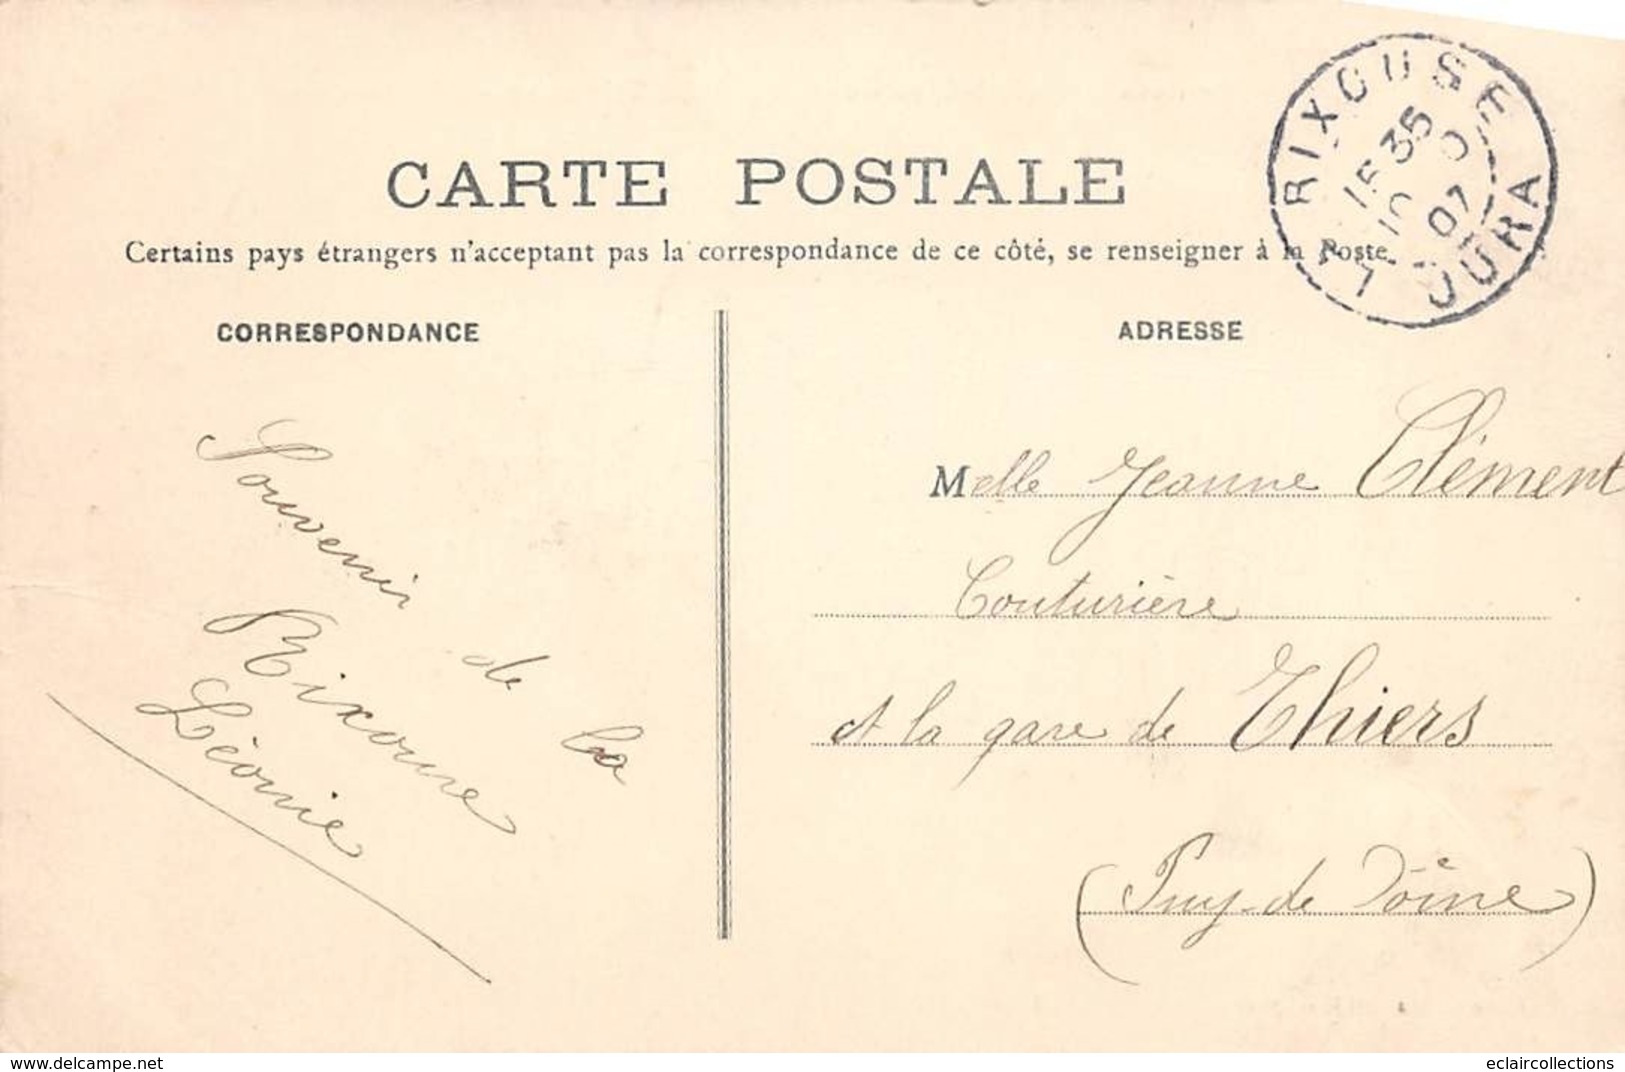 CARTE POSTALE
Certains pays étrangers n'acceptant pas la correspondance de ce côté, se renseigner à la Poste
LA RIXOUSE
JURA
15 35
10
07
CORRESPONDANCE
ADRESSE
Souvenir de la
Rixouse
Léonie
Melle Jeanne Clément
Couturière
A la gare de Thiers
(Puy-de Dôme)
delcampe.net
eclaircollections